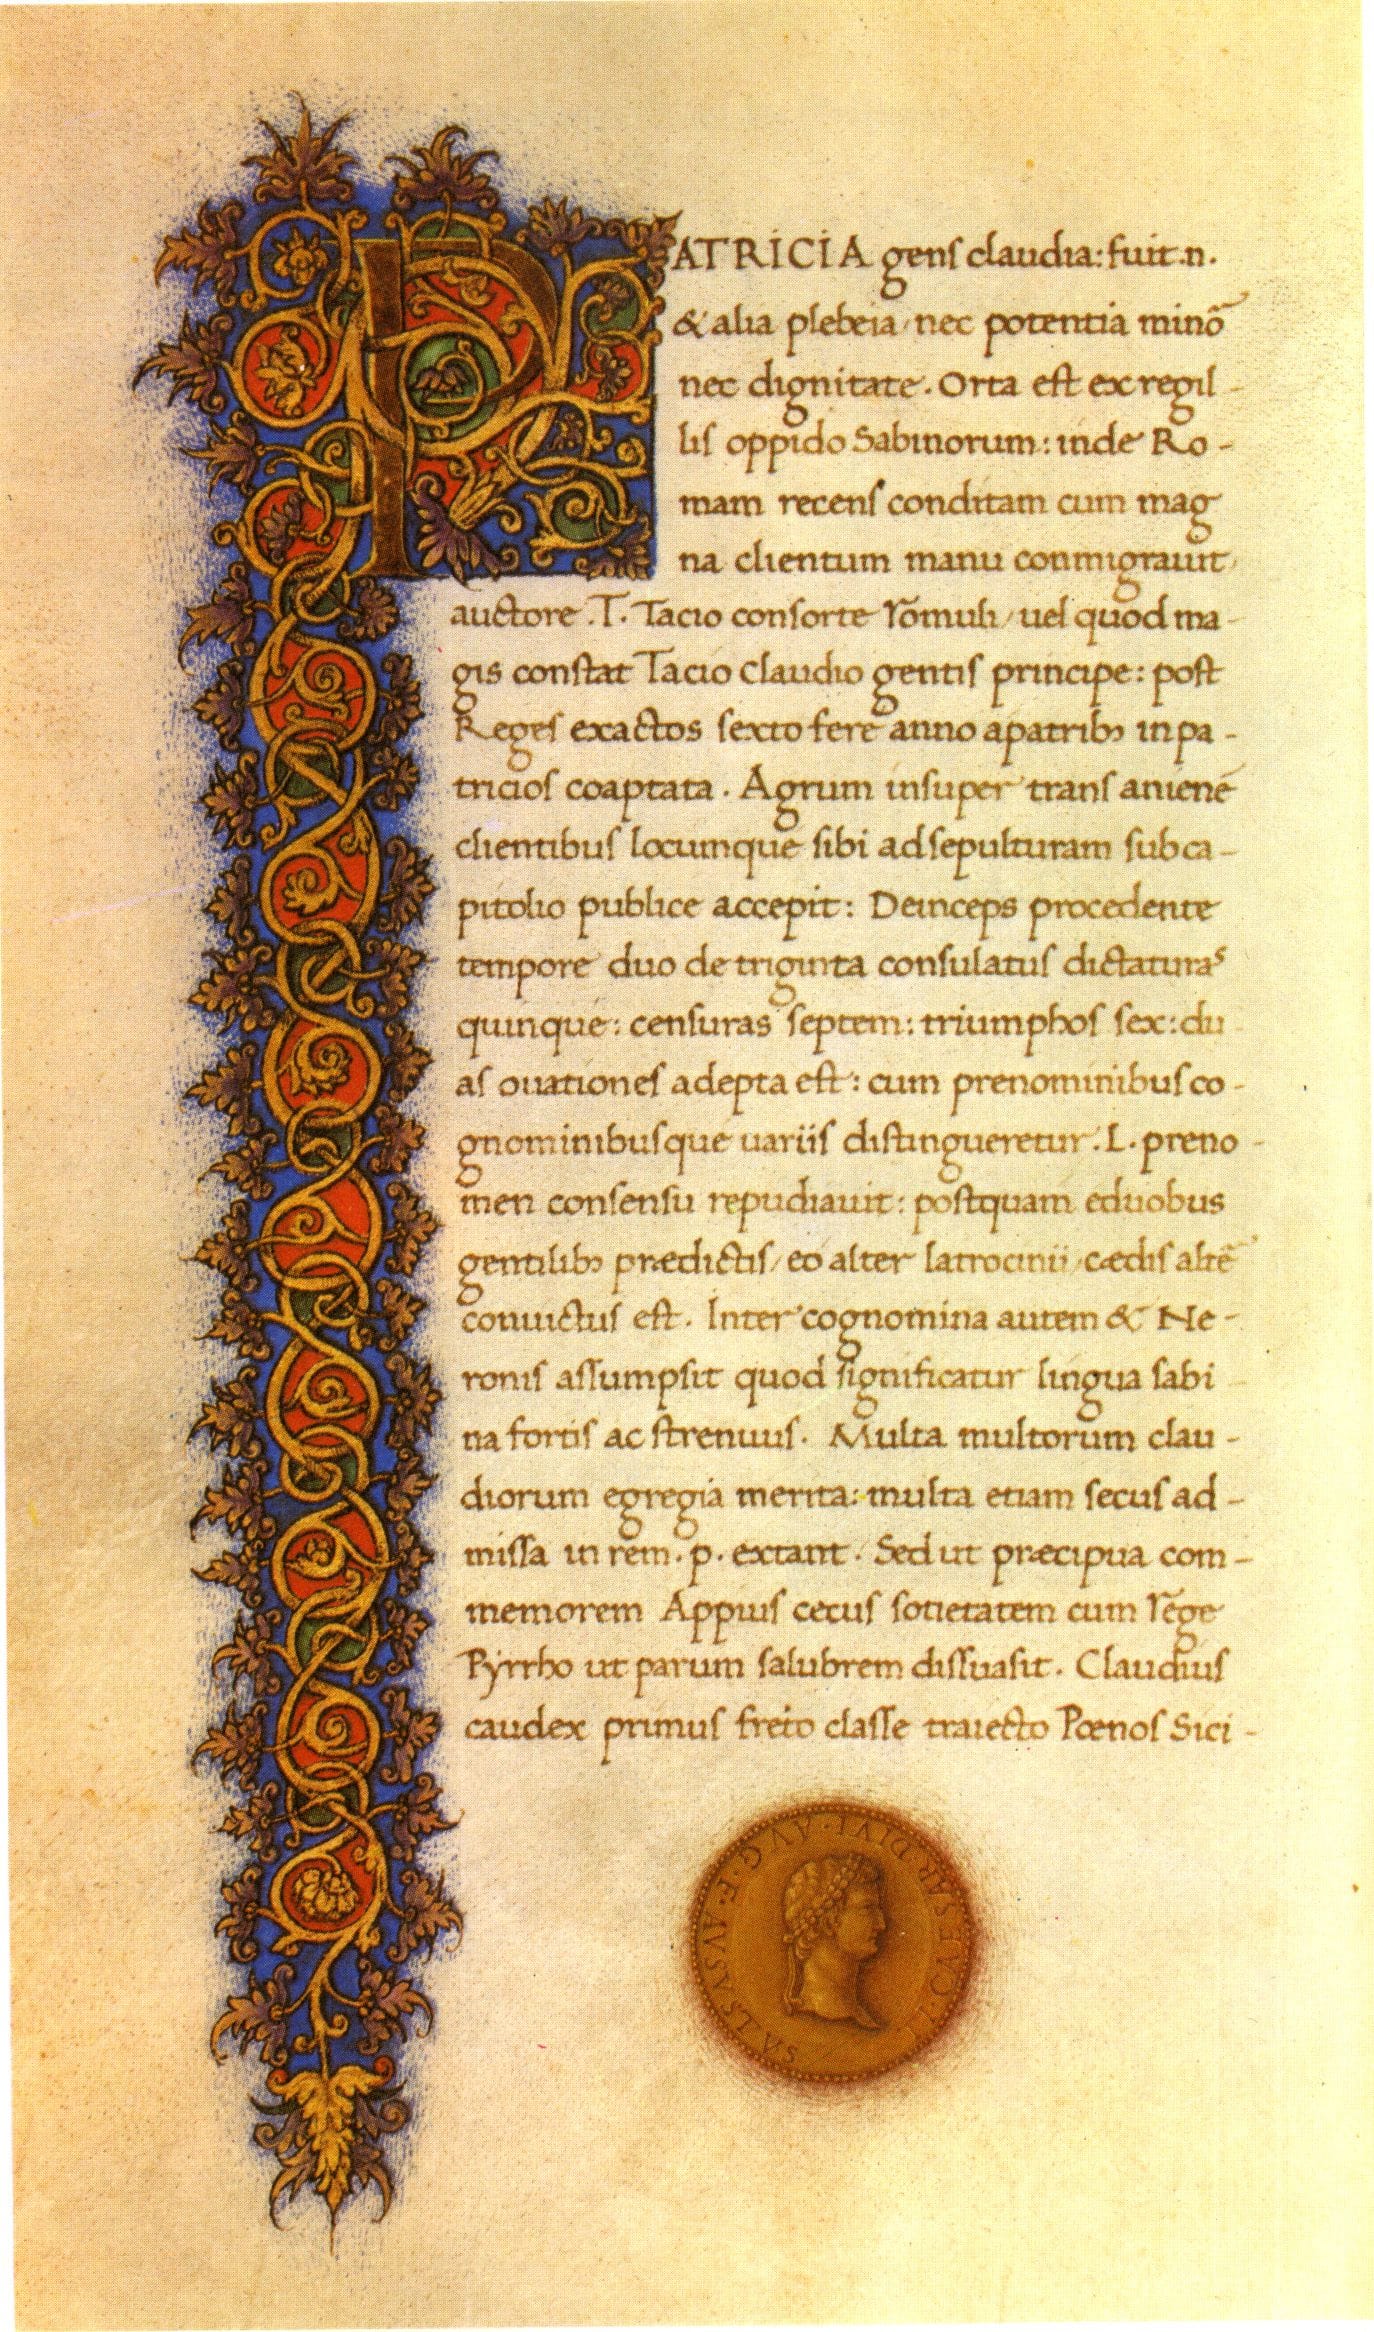 PATRICIA gens claudia: fuit .n.
& alia plebeia/ nec potentia minõ
nec dignitate. Orta est ex regil-
lis oppido Sabinorum: inde Ro-
mam recens conditam cum mag
na clientum manu conmigrauit/
auctore .T. Tacio consorte rõmuli/ uel quod ma-
gis constat Tacio Claudio gentis principe: post
Reges exactos sexto fere anno apatribꝫ in pa-
tricios coaptata. Agrum insuper trans anienē
clientibus locumque sibi ad sepulturam sub ca-
pitolio publice accepit: Deinceps procedente
tempore duo de triginta consulatus dictaturas
quinque: censuras septem: triumphos sex: du
as ouationes adepta est: cum prenominibus co-
gnominibusque uariis distingueretur. L. preno-
men consensu repudiauit: postquam eduobus
gentilibꝫ prædictis/ eo alter latrocinii/ cædis altē
conuictus est. Inter cognomina autem & Ne-
ronis assumpsit quod significatur lingua sabi-
na fortis ac strenuus. Multa multorum clau-
diorum egregia merita: multa etiam secus ad-
missa in rem .p. extant. Sed ut præcipua com-
memorem Appius cecus sotietatem cum rēge
Pyrrho ut parum salubrem dissuasit. Claudius
caudex primus freto classe traiecto Pœnos Sici-
TI·CAESAR DIVI·AVG·F·AVGVSTVS